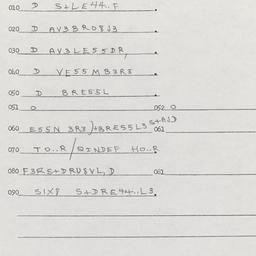 010 D S+LE44..F
020 D AV3BRO8J3
030 D AV3LE55DR,
040 D VE55MB3R3
050 D BRE55L
051 0 052 0
060 E55N 3R3)+BRE55L3 S+AJD 061
070 TO..R/QINDEF HO..R
080 F3RS+DRU8VL,D 081
090 SIX8 S+DRE44..L3